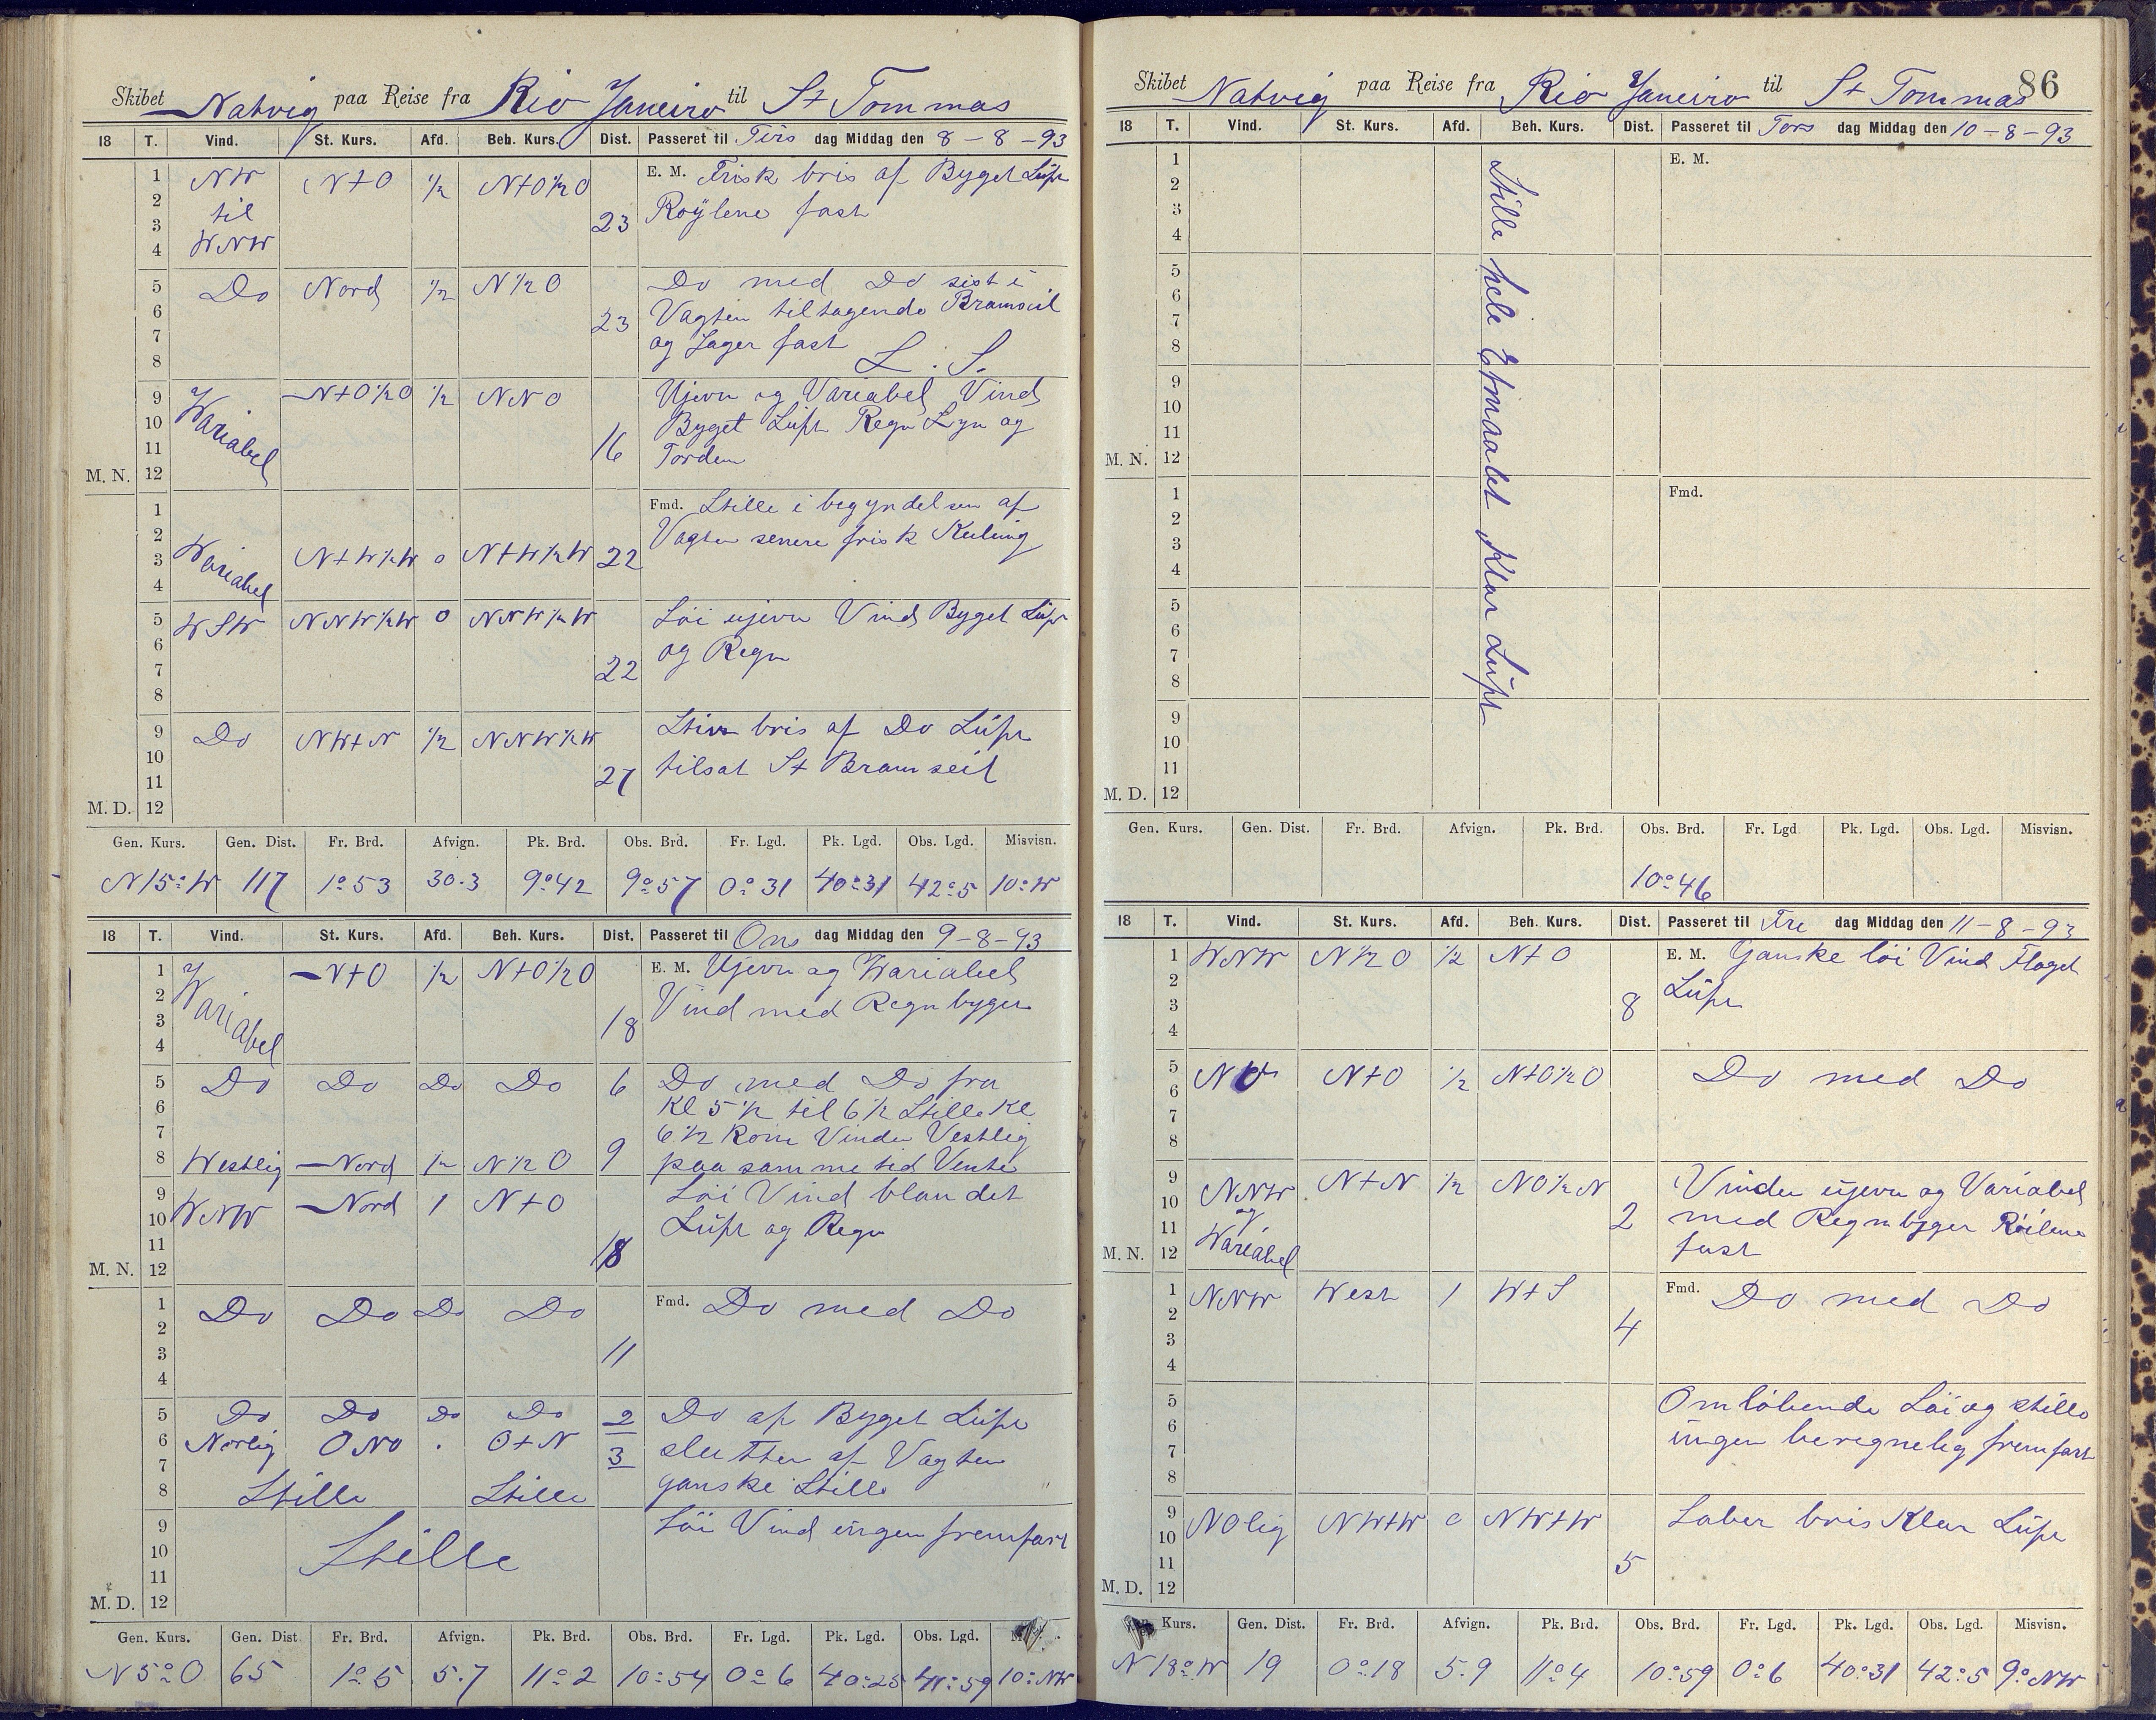 Skibet Natvig paa Reise fra Rio Janeiro til St Tommas
18 T. Vind. St. Kurs. Afd. Beh. Kurs. Dist. Passeret til Tirs dag Middag den 8-8-93
1 2 3 4
NW til WNW N+O 1/2 N+O1/2O 23
E. M. Frisk bris af Byget Luft
Röÿlene fast
5 6 7 8
Do Nord 1/2 N1/2O 23
Do med Do sist i
Vagten tiltagende Bramseil
og Jager fast L. S.
9 10 11 M. N. 12
Variabel N+O1/2O 1/2 NNO 16
Ujevn og Variabel Vind
Byget Luft Regn Lyn og
Torden
1 2 3 4
Wariabel N+W1/2W 0 N+W1/2W 22
Fmd. Stille i begyndelsen af
Vagten senere frisk Kuling
5 6 7 8
WSW NNW1/2W 0 NNW1/2W 22
Löi ujevn Vind Byget Luft
og Regn
9 10 11 M. D. 12
Do NW+N 1/2 NNW1/2W 27
Stiv bris af Do Luft
tilsat St Bramseil
Gen. Kurs. Gen. Dist. Fr. Brd. Afvign. Pk. Brd. Obs. Brd. Fr. Lgd. Pk. Lgd. Obs. Lgd. Misvisn.
N15°W 117 1°53 30.3 9°42 9°57 0°31 40°31 42°5 10°W
18 T. Vind. St. Kurs. Afd. Beh. Kurs. Dist. Passeret til Ons dag Middag den 9-8-93
1 2 3 4
Variabel N+O 1/2 N+O1/2O 18
E. M. Ujevn og Wariabel
Vind med Regnbyger
5 6 7 8
Do Do Do Do 6
Westlig Nord 1/2 N1/2O 9
Do med Do fra
Kl 5 1/2 til 6 1/2 Stille Kl
6 1/2 kom Vinden Vestlig
paa samme tid Vente
9 10 11 M. N. 12
WNW Nord 1 N+O 18
Löi Vind blandet
Luft og Regn
1 2 3 4
Do Do Do Do 11
Fmd. Do med Do
5 6 7 8
Do Do Do Do 2
Norlig ONO . O+N 3
Stille Stille
Do af Byget Luft
slutten af Vagten
ganske Stille
9 10 11 M. D. 12
Stille
Löi Vind ingen fremfart
Gen. Kurs. Gen. Dist Fr. Brd. Afvign. Pk. Brd. Obs. Brd. Fr. Lgd. Pk. Lgd. Obs. Lgd.
N5°O 65 1°5 5.7 11°2 10°54 0°6 40°25 41°59 10°NW
Skibet Natvig paa Reise fra Rio Janeiro til St Tommas 86
18 T. Vind. St. Kurs. Afd. Beh. Kurs. Dist. Passeret til Tors dag Middag den 10-8-93
1 2 3 4 E. M.
5 6 7 8
9 10 11 M. N. 12
1 2 3 4 Fmd.
5 6 7 8
9 10 11 M. D. 12
Stille hele Etmaalet Klar Luft
Gen. Kurs. Gen. Dist. Fr. Brd. Afvign. Pk. Brd. Obs. Brd. Fr. Lgd Pk. Lgd. Obs. Lgd. Misvisn.
10°46
18 T. Vind. St. Kurs. Afd. Beh. Kurs. Dist. Passeret til Fre dag Middag den 11-8-93
1 2 3 4
WNW N1/2O 1/2 N+O 8
E. M. Ganske löi Vind Flaget
Luft
5 6 7 8
NO N+O 1/2 N+O1/2O
Do med Do
9 10 11 M. N. 12
NNW og Wariabel N+N 1/2 NO1/2N 2
Vinden ujevn og Variabel
med Regnbyger Röilene
fast
1 2 3 4
NNW West 1 W+S 4
Fmd. Do med Do
5 6 7 8
Omlöbende Löi og stille
ingen beregnelig fremfart
9 10 11 M. D. 12
NOlig NW+W 0 NW+W 5
Laber bris Klar Luft
Kurs. Gen. Dist. Fr. Brd. Afvign. Pk. Brd. Obs. Brd. Fr. Lgd. Pk. Lgd. Obs. Lgd. Misvisn.
N18°W 19 0°18 5.9 11°4 10°59 0°6 40°31 42°5 9°NW